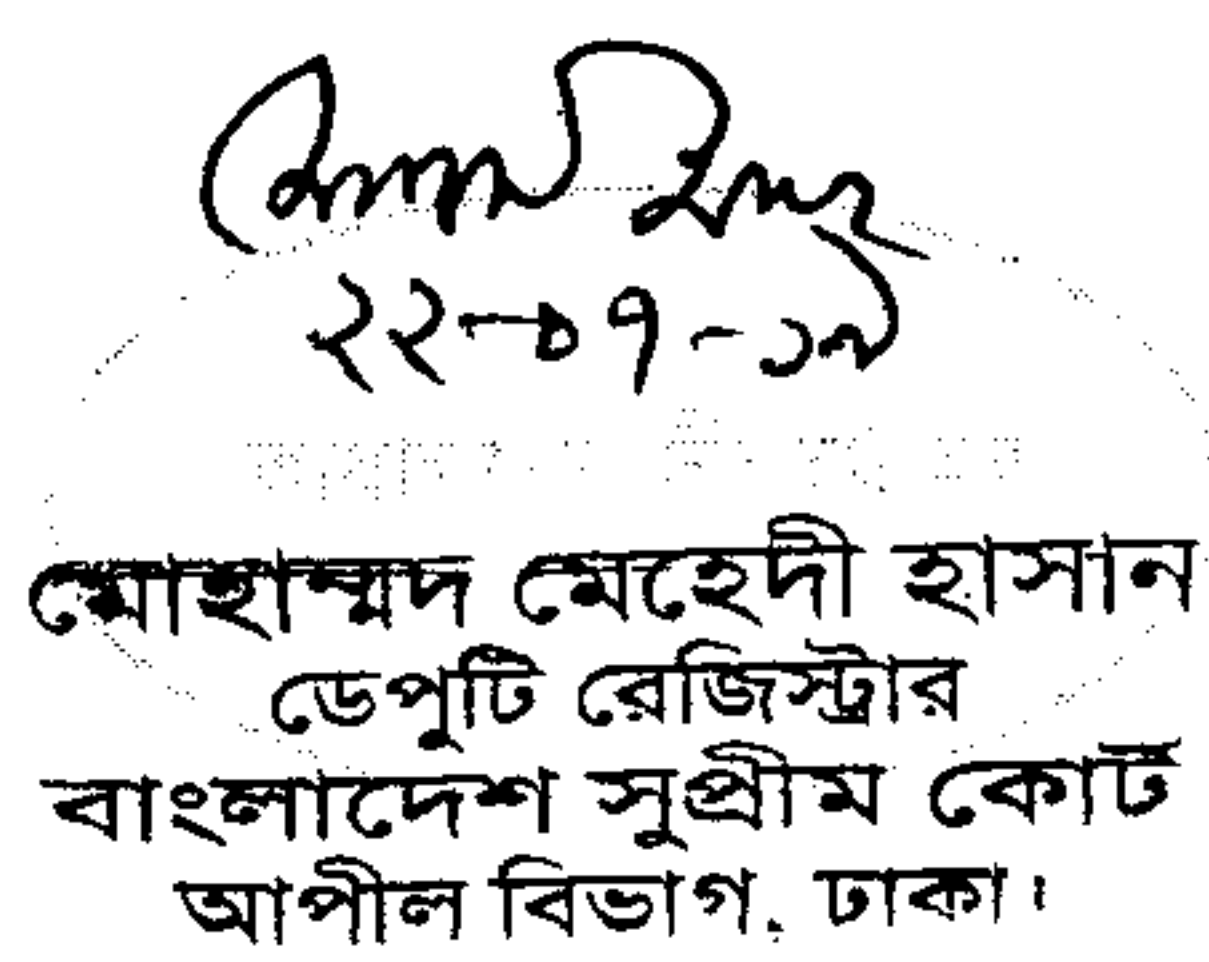 ২২-০৭-১৯
মোহাম্মদ মেহেদী হাসান
ডেপুটি রেজিস্ট্রার
বাংলাদেশ সুপ্রীম কোর্ট
আপীল বিভাগ, ঢাকা।